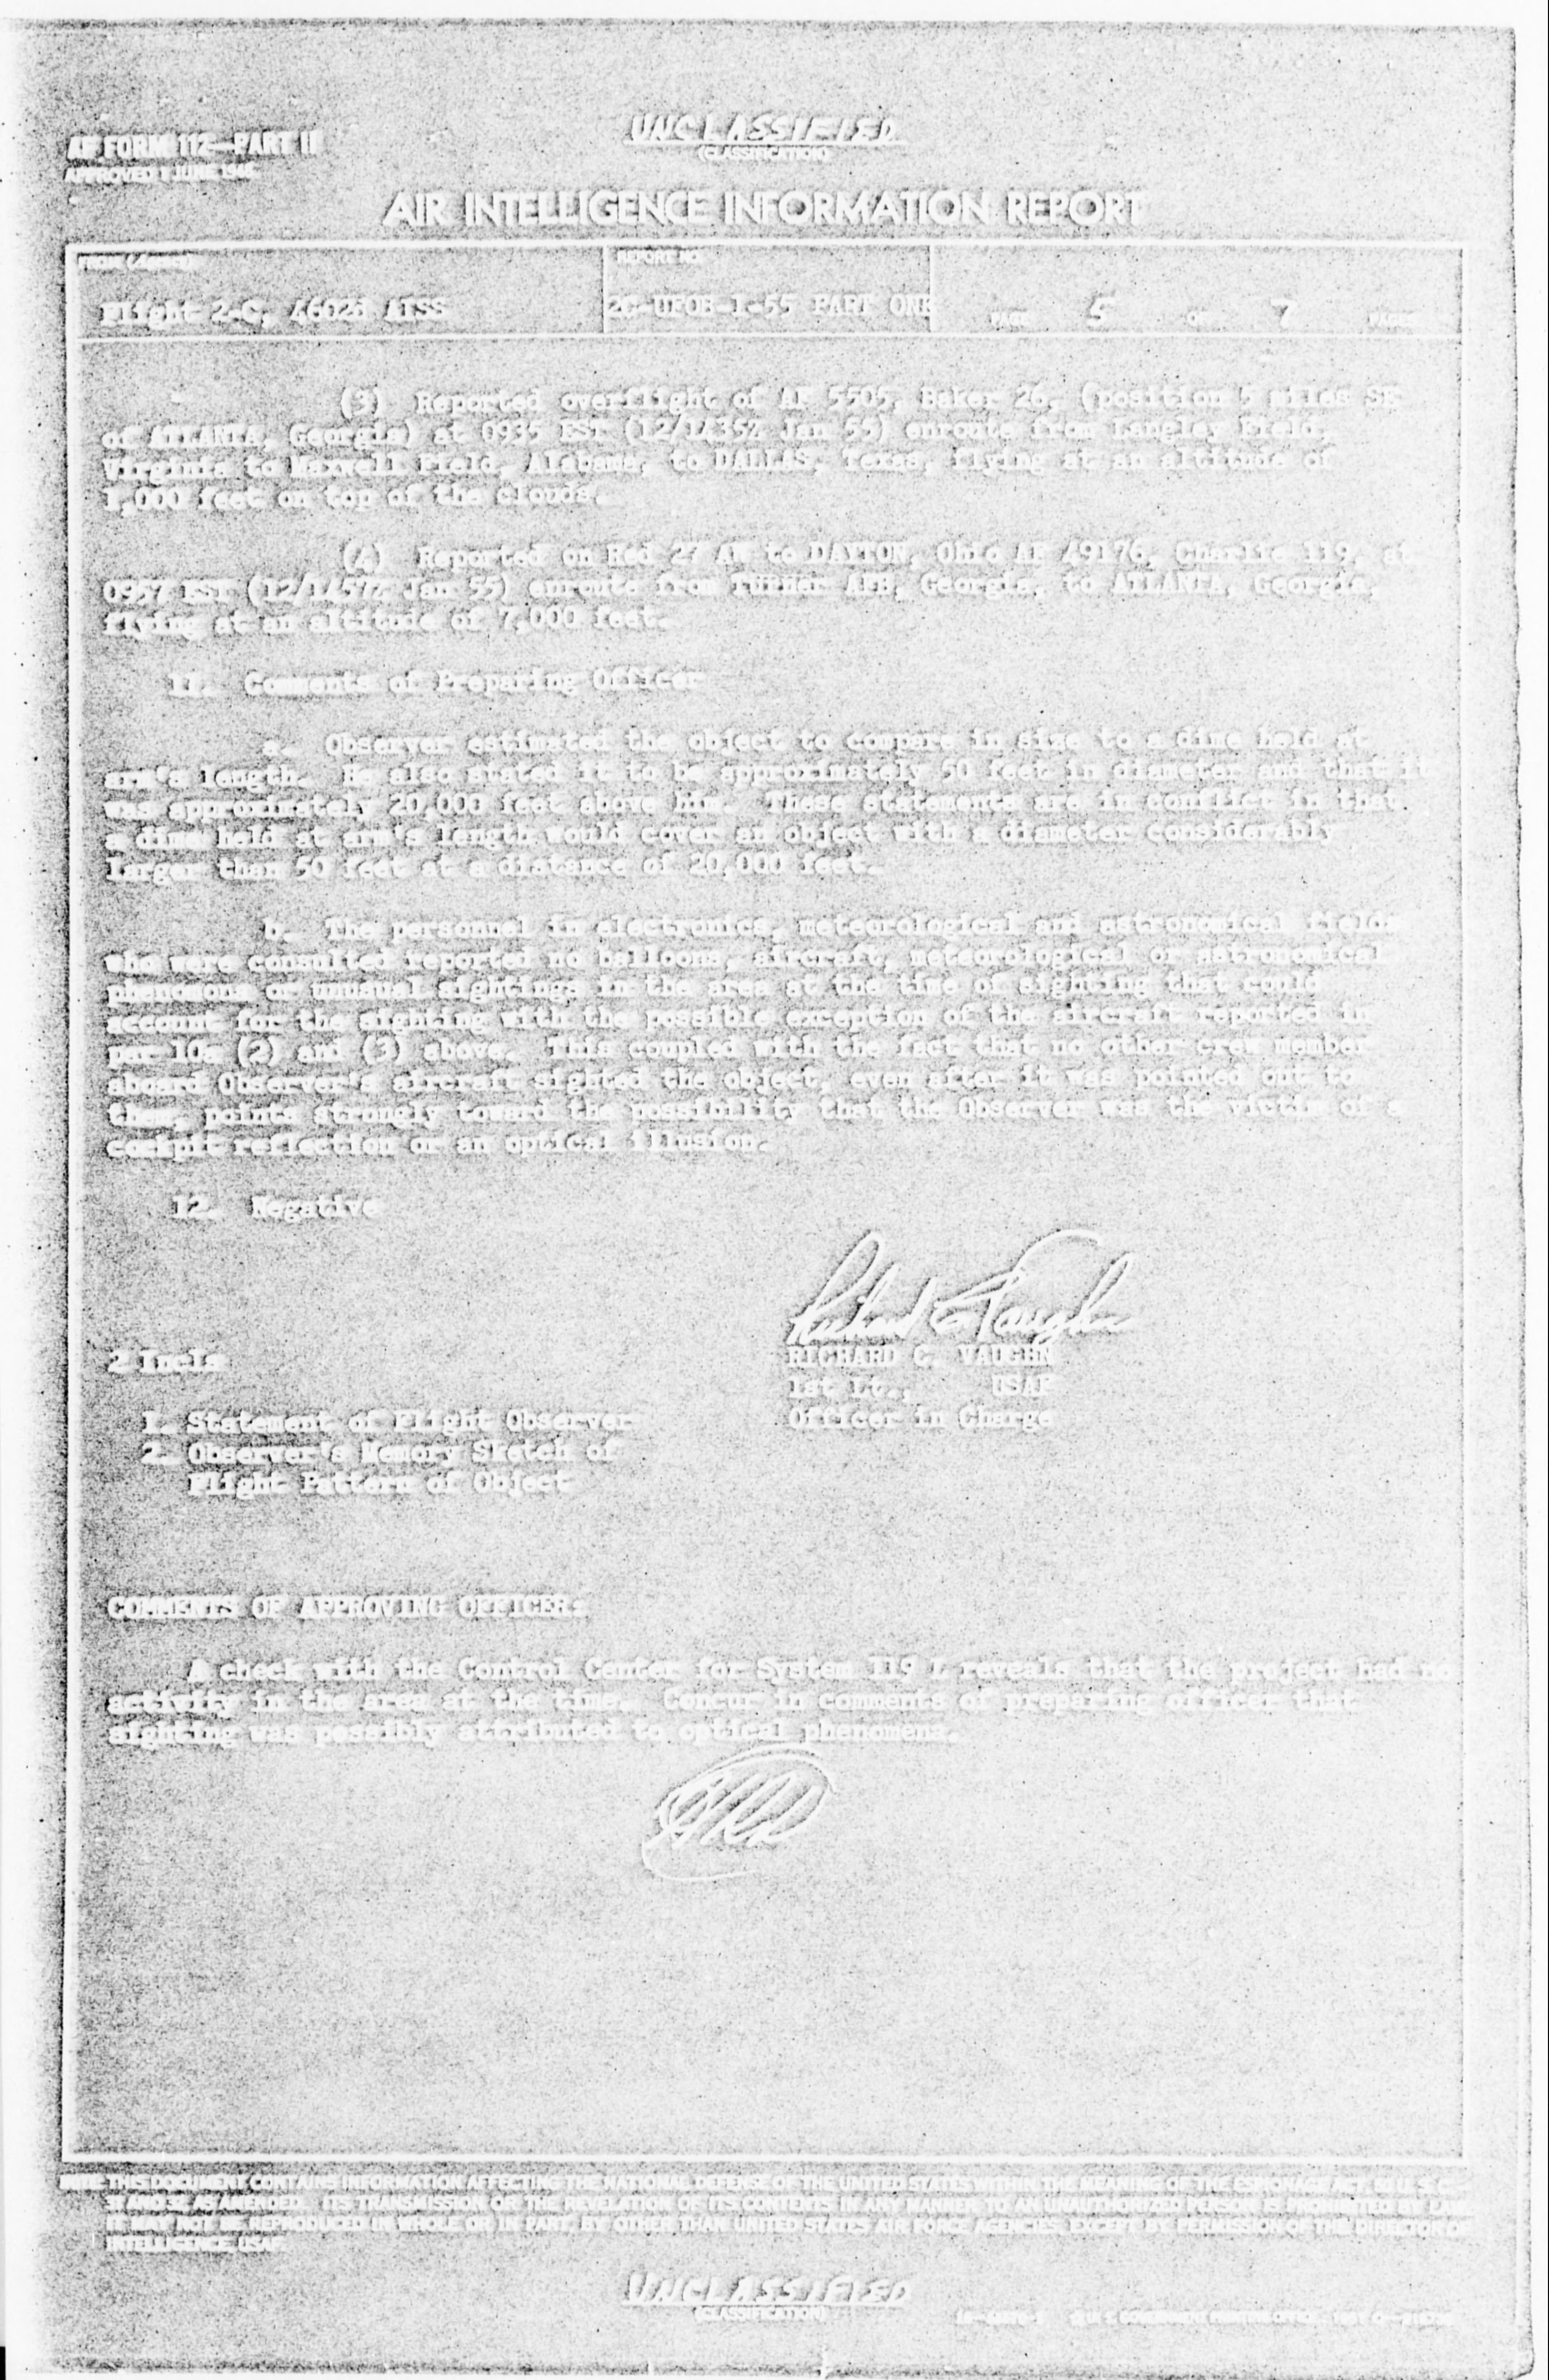 UNCLASSIFIED
(CLASSIFICATION)
AF FORM 112—PART II
APPROVED 1 JUNE 1948
AIR INTELLIGENCE INFORMATION REPORT
FROM (Agency)
REPORT NO.
Flight 2-C, 4602d AISS
2C-UFOB-1-55 PART ONE
PAGE 5 OF 7 PAGES
(3) Reported overflight of AF 5505, Baker 26, (position 5 miles SE
of ATLANTA, Georgia) at 0935 EST (12/1435Z Jan 55) enroute from Langley Field,
Virginia to Maxwell Field, Alabama, to DALLAS, Texas, flying at an altitude of
1,000 feet on top of the clouds.
(4) Reported on Red 27 AW to DAYTON, Ohio AF 49176, Charlie 119, at
0957 EST (12/1457Z Jan 55) enroute from Turner AFB, Georgia, to ATLANTA, Georgia,
flying at an altitude of 7,000 feet.
11. Comments of Preparing Officer
a. Observer estimated the object to compare in size to a dime held at
arm's length. He also stated it to be approximately 50 feet in diameter and that it
was approximately 20,000 feet above him. These statements are in conflict in that
a dime held at arm's length would cover an object with a diameter considerably
larger than 50 feet at a distance of 20,000 feet.
b. The personnel in electronics, meteorological and astronomical fields
who were committed reported no balloons, aircraft, meteorological or astronomical
phenomena or unusual sightings in the area at the time of sighting that could
account for the sighting with the possible exception of the aircraft reported in
par 10a (2) and (3) above. This coupled with the fact that no other crew member
aboard Observer's aircraft sighted the object, even after it was pointed out to
them, points strongly toward the possibility that the Observer was the victim of a
cockpit reflection or an optical illusion.
12. Negative
2 Incls
RICHARD C. VAUGHN
1st Lt., USAF
Officer in Charge
1. Statement of Flight Observer
2. Observer's Memory Sketch of
Flight Pattern of Object
COMMENTS OF APPROVING OFFICER:
A check with the Control Center for System 119 L reveals that the project had no
activity in the area at the time. Concur in comments of preparing officer that
sighting was possibly attributed to optical phenomena.
NOTE: THIS DOCUMENT CONTAINS INFORMATION AFFECTING THE NATIONAL DEFENSE OF THE UNITED STATES WITHIN THE MEANING OF THE ESPIONAGE ACT, 50 U. S. C.—
31 AND 32, AS AMENDED. ITS TRANSMISSION OR THE REVELATION OF ITS CONTENTS IN ANY MANNER TO AN UNAUTHORIZED PERSON IS PROHIBITED BY LAW.
IT MAY NOT BE REPRODUCED IN WHOLE OR IN PART, BY OTHER THAN UNITED STATES AIR FORCE AGENCIES, EXCEPT BY PERMISSION OF THE DIRECTOR OF
INTELLIGENCE, USAF.
UNCLASSIFIED
(CLASSIFICATION)
U. S. GOVERNMENT PRINTING OFFICE